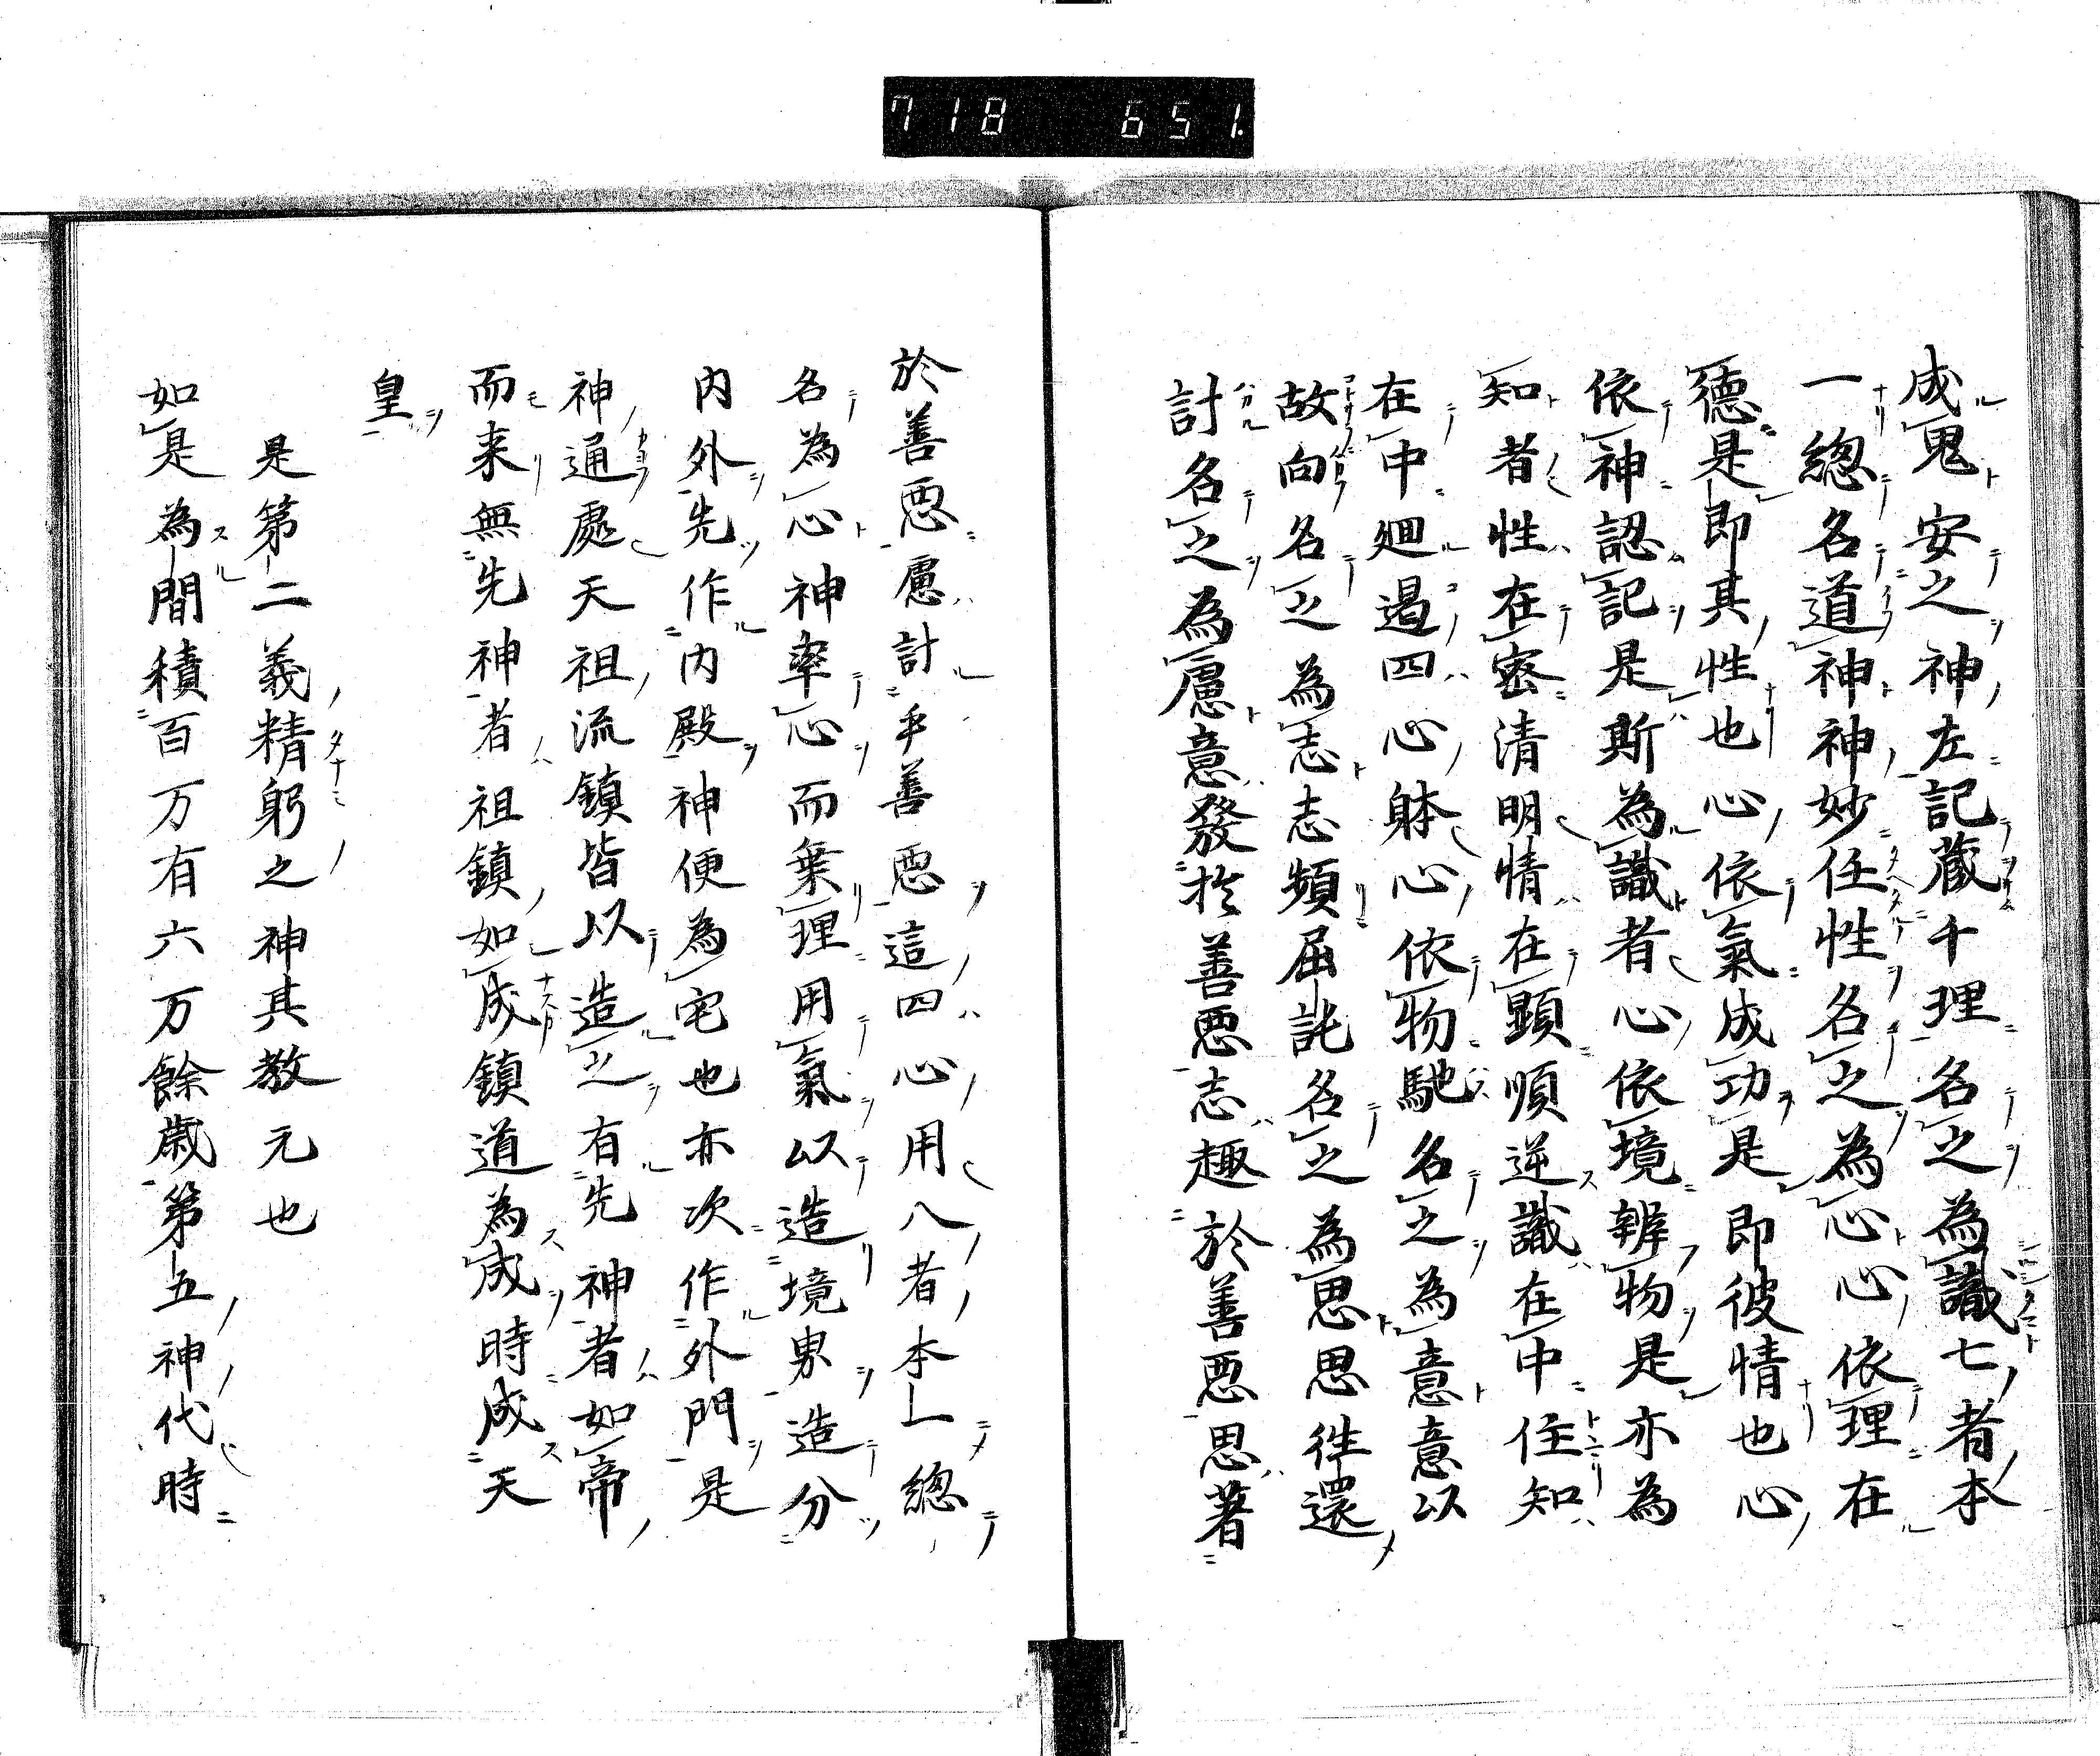 718 651.
成鬼安之神左記蔵千理名之為識七者本
一總名道神神妙任性名之為心心依理在
德是即其性也心依氣成功是即彼情也心
依神認記是斯為識者心依境辨物是亦為
知者性在密清明情在顕順逆識在中住知
在中廻過四心躰心依物馳名之為意意以
故向名之為志志頻屈詫名之為思思往還
計名之為慮意發於善悪志趣於善悪思著
於善悪慮計乎善悪這四心用八者本一總
名為心神率心而棄理用氣以造境界造分
内外先作内殿神便為宅也亦次作外門是
神通處天祖流鎮皆以造之有先神者如帝
而来無先神者祖鎮如成鎮道為成時成天
皇
是第二義精躬之神其教元也
如是為間積百万有六万餘歳第五神代時